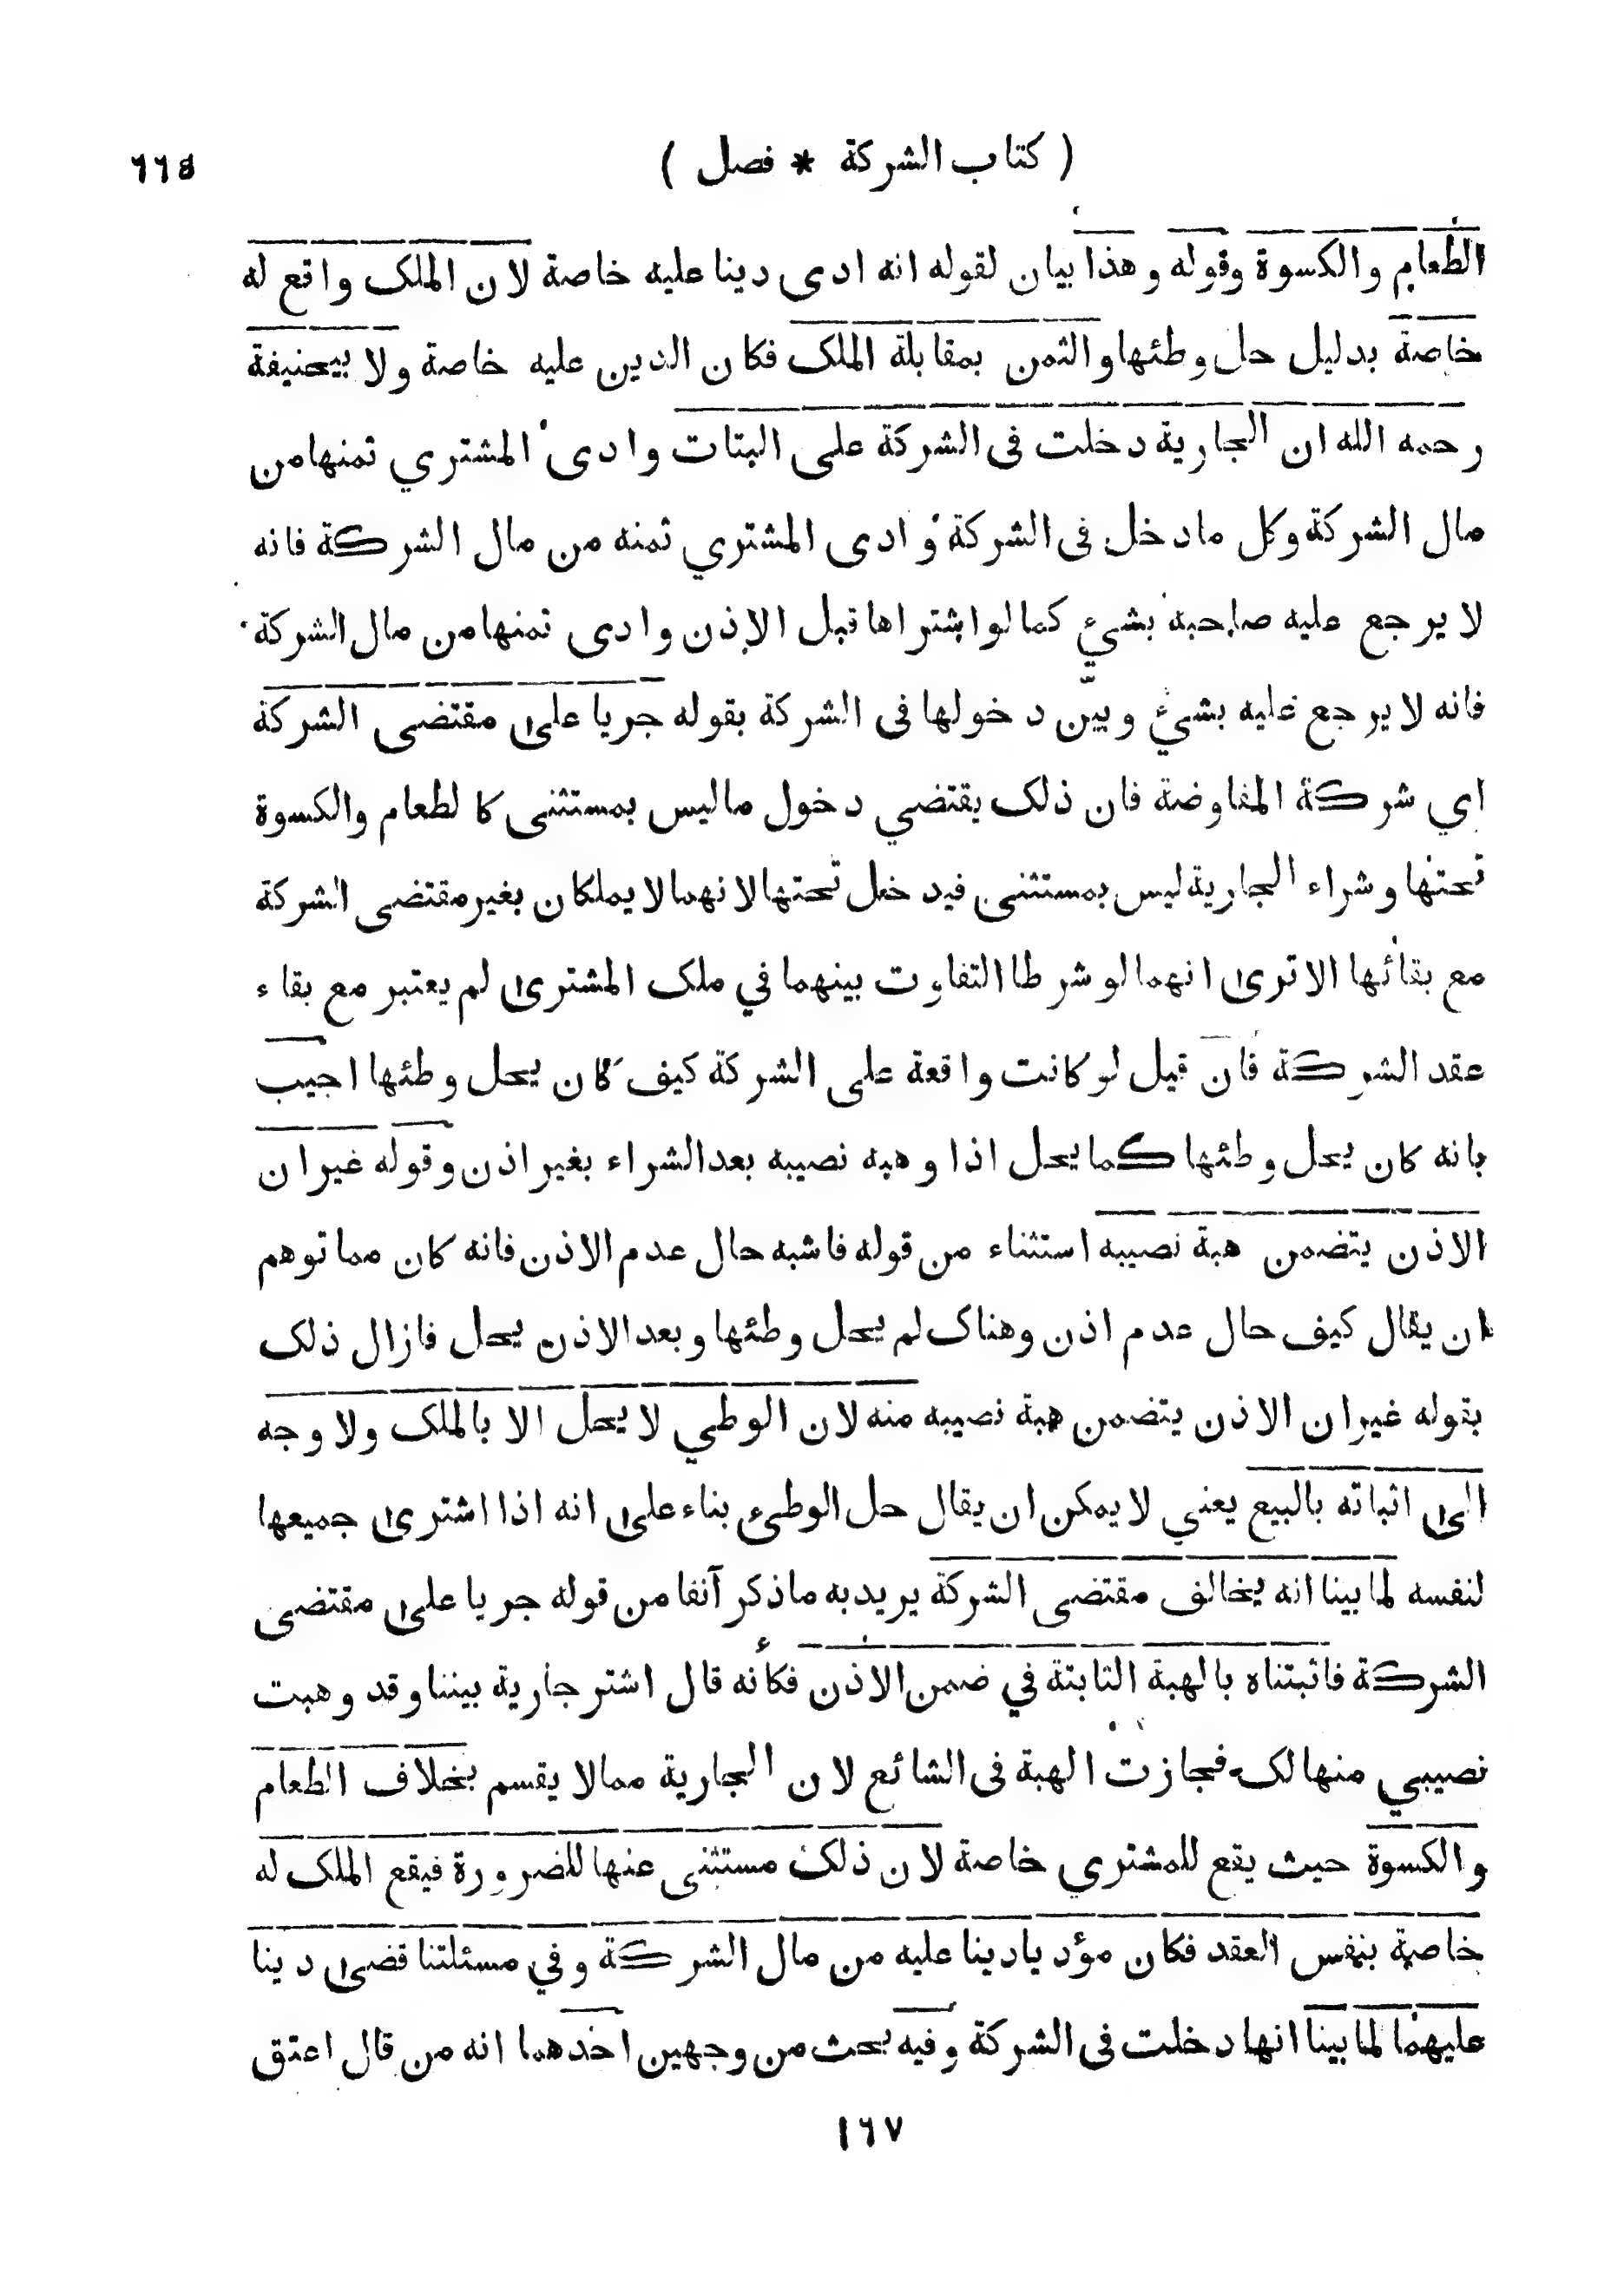 ( كتاب الشركة * فصل ) ٦٦٥
الطعام والكسوة وقوله وهذا بيان لقوله انه ادى دينا عليه خاصة لان الملك واقع له
خاصة بدليل حل وطئها والثمن بمقابلة الملك فكان الدين عليه خاصة ولا بيحنيفة
رحمه الله ان الجارية دخلت فى الشركة على البتات وادى المشتري ثمنها من
مال الشركة وكل ما دخل فى الشركة و ادى المشتري ثمنه من مال الشركة فانه
لا يرجع عليه صاحبه بشيء كما لو اشتراها قبل الاذن وادى ثمنها من مال الشركة
فانه لا يرجع عليه بشيء وبيّن دخولها فى الشركة بقوله جريا على مقتضى الشركة
اي شركة المفاوضة فان ذلك يقتضي دخول ما ليس بمستثنى كالطعام والكسوة
تحتها وشراء الجارية ليس بمستثنى فيدخل تحتها لانهما لا يملكان بغير مقتضى الشركة
مع بقائها الا ترى انهما لو شرطا التفاوت بينهما في ملك المشترى لم يعتبر مع بقاء
عقد الشركة فان قيل لو كانت واقعة على الشركة كيف كان يحل وطئها اجيب
بانه كان يحل وطئها كما يحل اذا وهبه نصيبه بعد الشراء بغير اذن وقوله غير ان
الاذن يتضمن هبة نصيبه استثناء من قوله فاشبه حال عدم الاذن فانه كان مما توهم
ان يقال كيف حال عدم اذن وهناك لم يحل وطئها وبعد الاذن يحل فازال ذلك
بقوله غير ان الاذن يتضمن هبة نصيبه منه لان الوطي لا يحل الا بالملك ولا وجه
الى اثباته بالبيع يعني لا يمكن ان يقال حل الوطىء بناء على انه اذا اشترى جميعها
لنفسه لما بينا انه يخالف مقتضى الشركة يريد به ما ذكر آنفا من قوله جريا على مقتضى
الشركة فاثبتناه بالهبة الثابتة في ضمن الاذن فكأنه قال اشتر جارية بيننا وقد وهبت
نصيبي منها لك فجازت الهبة فى الشائع لان الجارية مما لا يقسم بخلاف الطعام
والكسوة حيث يقع للمشترى خاصة لان ذلك مستثنى عنها للضرورة فيقع الملك له
خاصة بنفس العقد فكان مؤديا دينا عليه من مال الشركة وفي مسئلتنا قضى دينا
عليهما لما بينا انها دخلت فى الشركة وفيه بحث من وجهين احدهما انه من قال اعتق
١٦٧